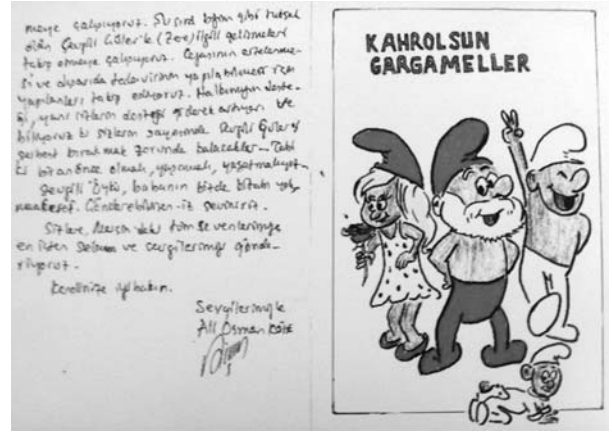 meye çalışıyoruz. Şu sıra bizim gibi tutsak
olan Sevgili Güler'le (Zere) ilgili gelişmeleri
takip etmeye çalışıyoruz. Cezasının ertelenme-
si ve dışarıda tedavisinin yapılabilmesi için
yapılanları takip ediyoruz. Halkımızın deste-
ği, yani sizlerin desteği giderek artıyor. Ve
biliyoruz ki sizlerin sayesinde Sevgili Güler'i
serbest bırakmak zorunda kalacaklar. Tabi
ki bir an önce olmalı, yaşamalı, yaşatmalıyız.
Sevgili Öykü, babanın bizde kitabı yok
maalesef. Gönderebilirsen-iz seviniriz.
Sizlere, Mersin'deki tüm sevenlerimize
en içten selam ve sevgilerimizi gönde-
riyoruz.
Kendinize iyi bakın.
Sevgilerimizle
Ali Osman KÖSE
KAHROLSUN
GARGAMELLER